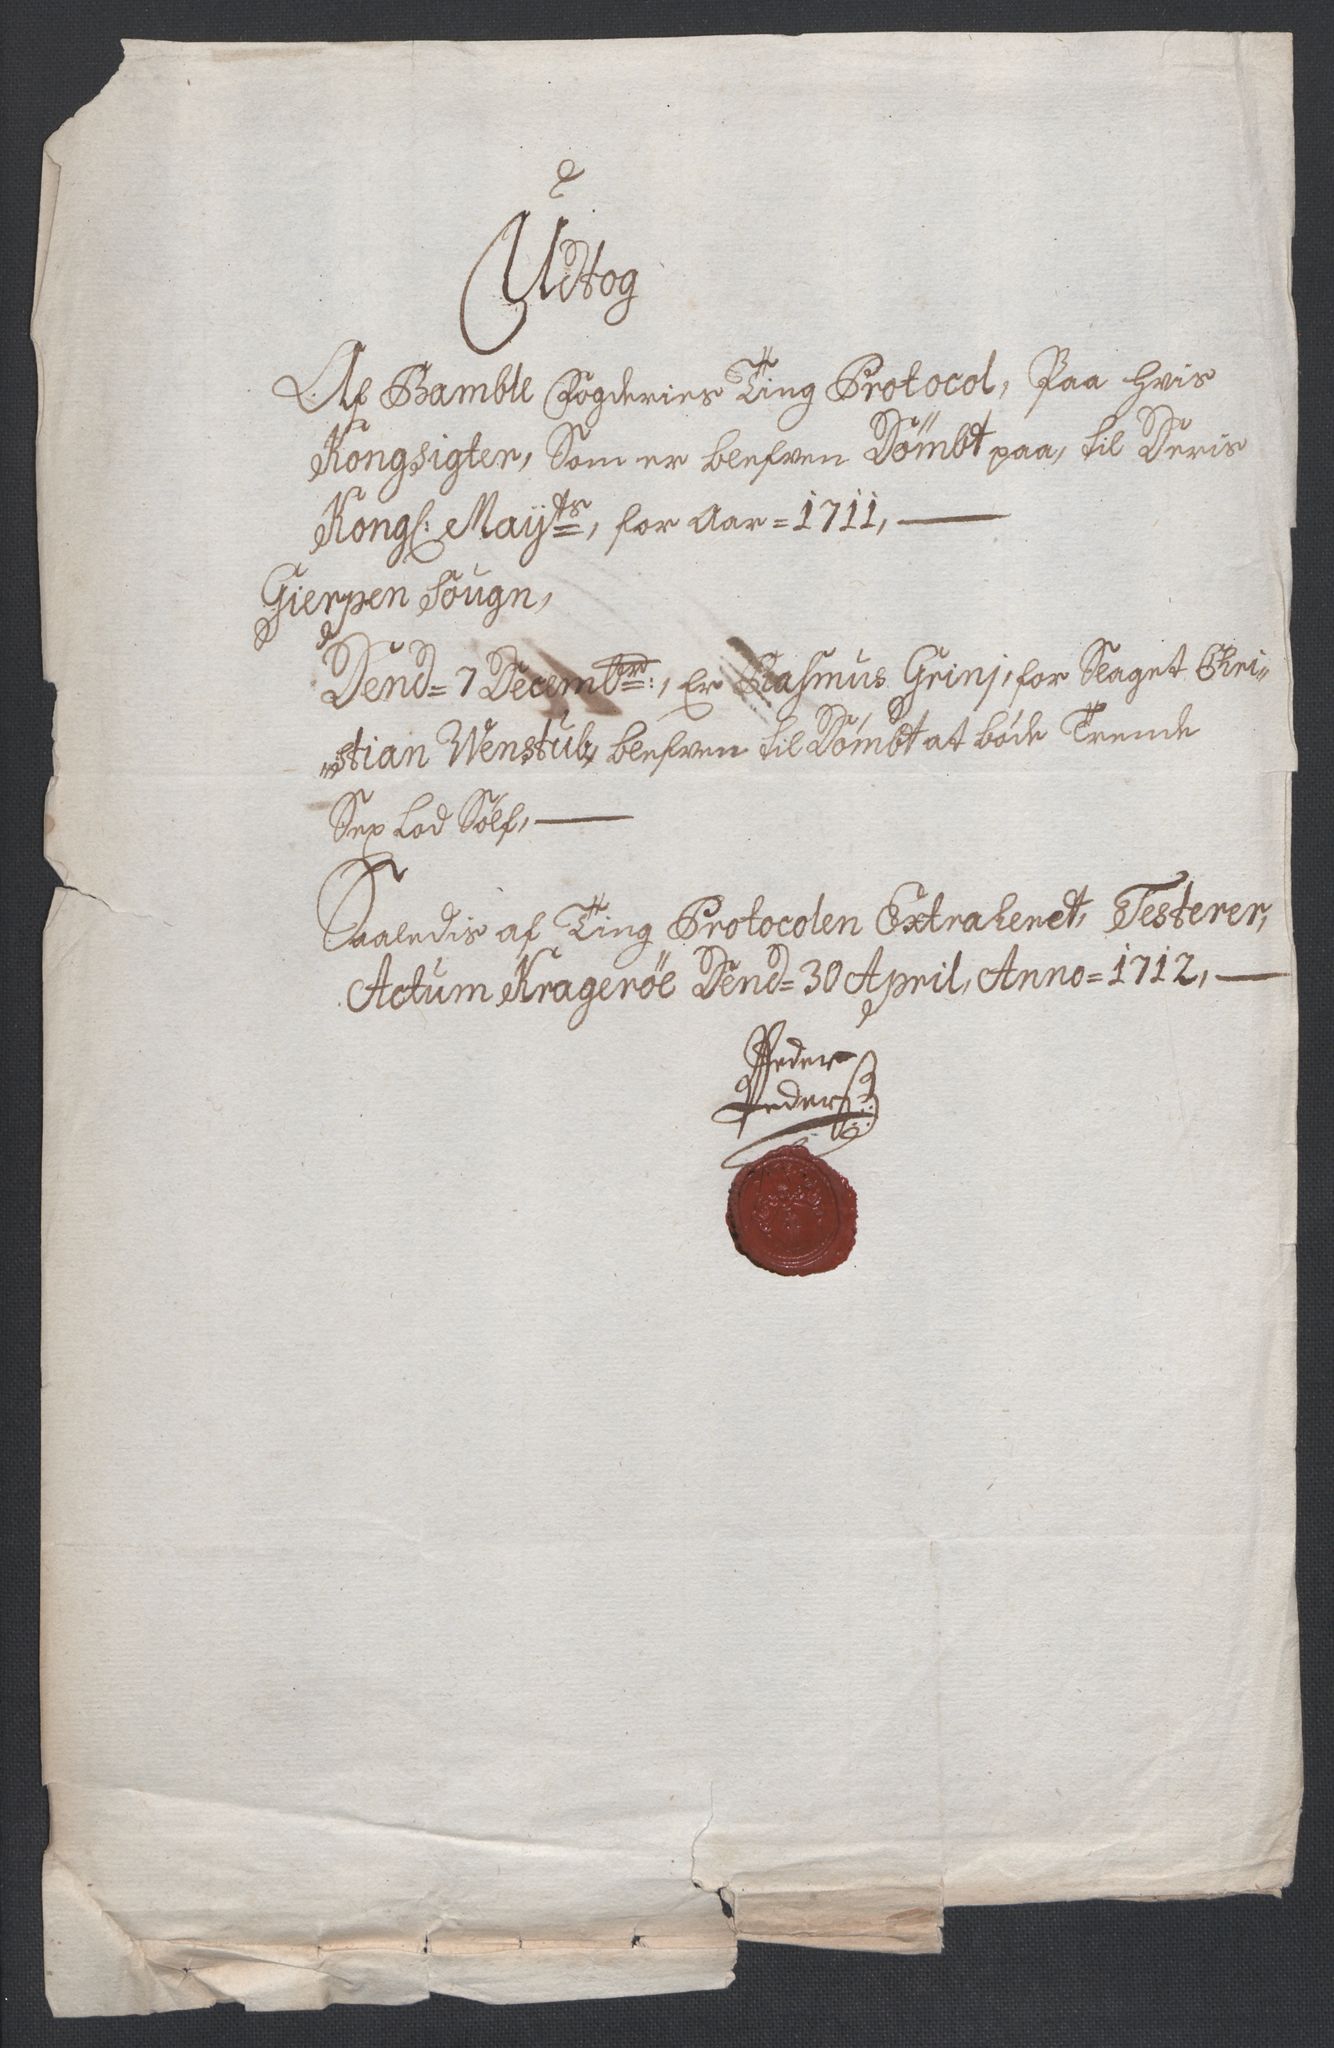 Udtog
Af Bamble Fogderies Ting Protocol, Paa hvis
Kongsigter, Som er blefven Dömbt paa, til Deris
Kongl: Maÿts, for Aar = 1711,
Gierpen Sougn,
Dend = 7 Decembr:, Er Rasmus Grinj, for Slaget Chri-
stian Wenstub, blefven til Dömbt at bøde Trende
Sex Lod Sölf,
Saaledis af Ting Protocolen Extraheret, Testerer,
Actum Krageröe Dend = 30 April, Anno = 1712,
Peder
Peders: